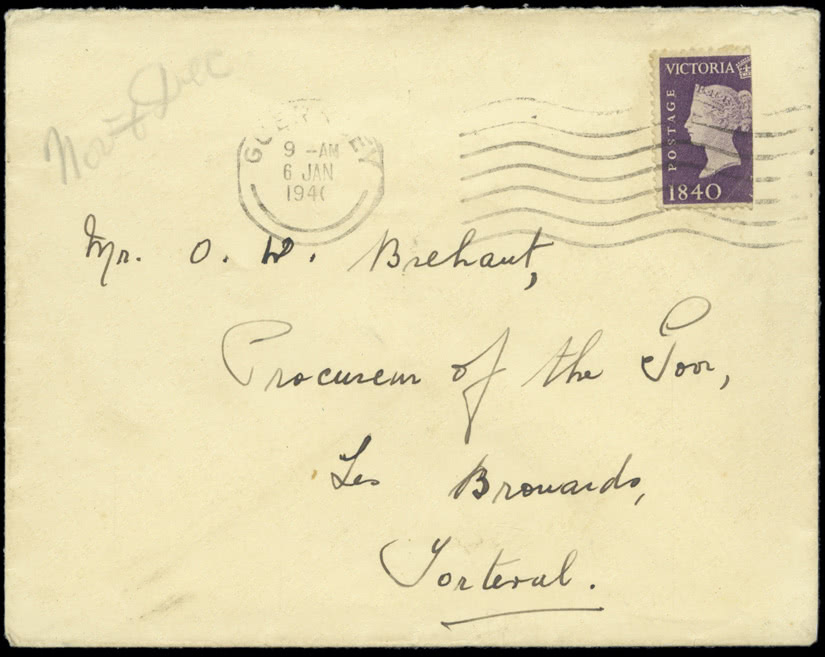 Nov & Dec
GUERNSEY
9 -AM
6 JAN
194
VICTORIA
POSTAGE
1840
Mr. O. W. Brehaut,
Procureur of the Poor,
Les Brouards,
Torteval.